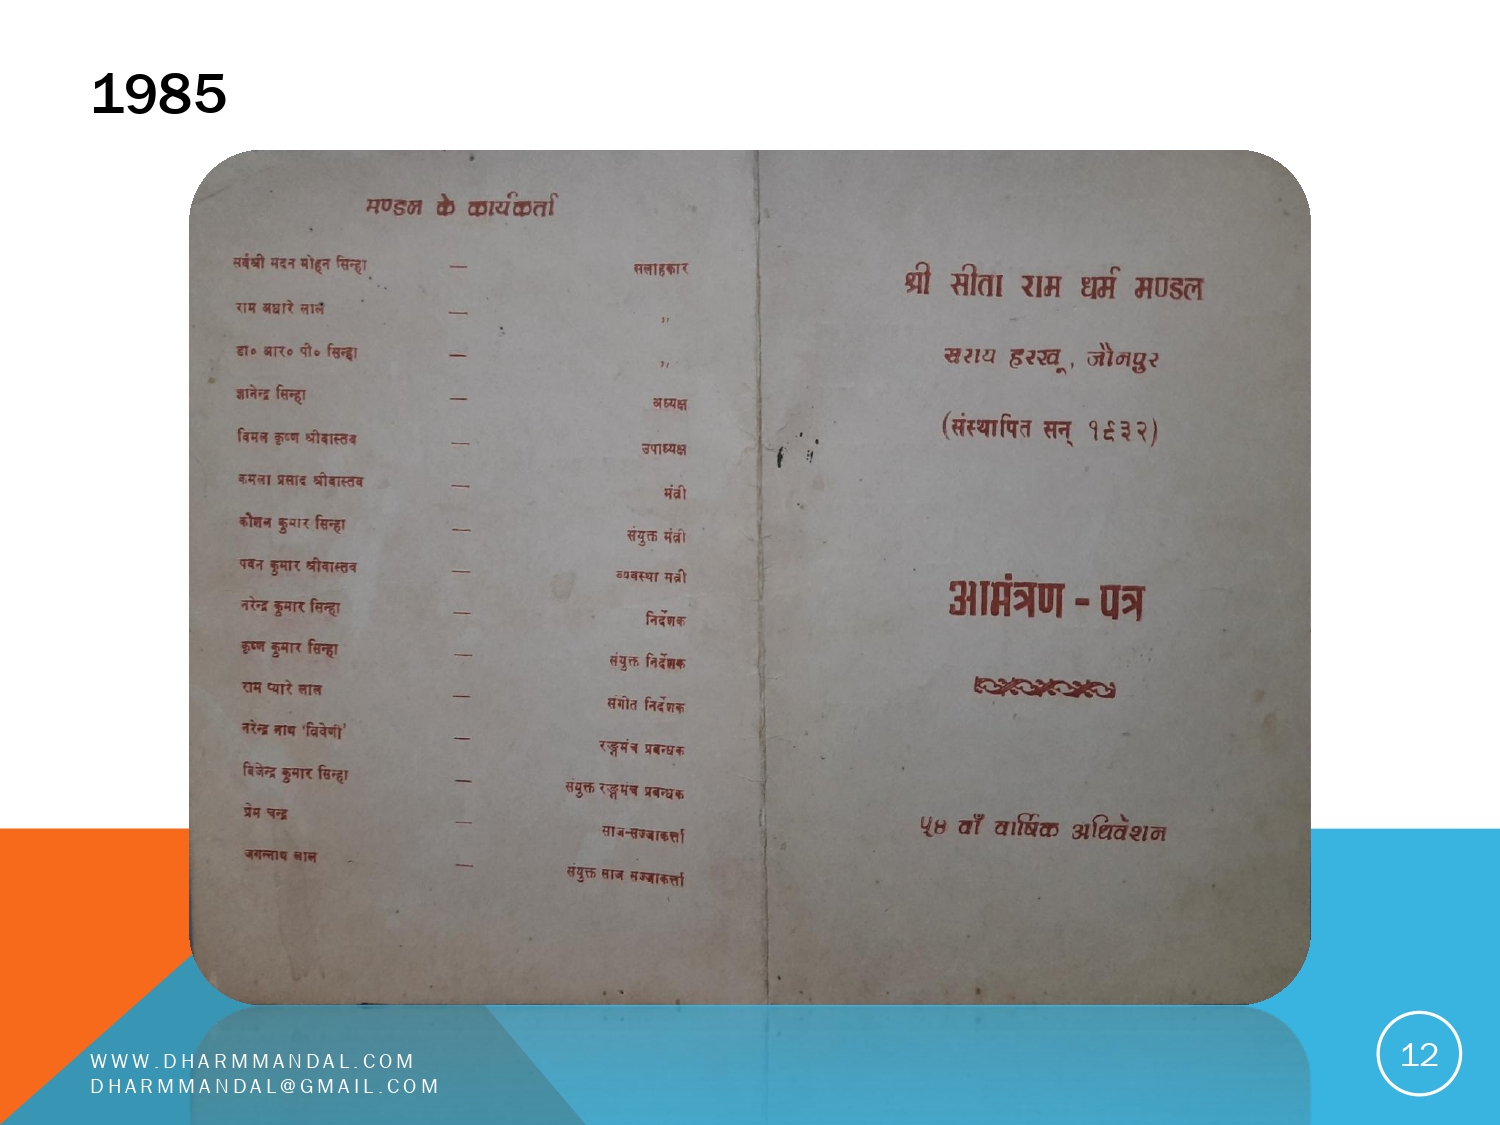 1985
मण्डल के कार्यकर्ता
सर्वश्री मदन मोहन सिन्हा — सलाहकार
राम अधारे लाल — ,,
डा० आर० पी० सिन्हा — ,,
ज्ञानेन्द्र सिन्हा — अध्यक्ष
विमल कृष्ण श्रीवास्तव — उपाध्यक्ष
कमला प्रसाद श्रीवास्तव — मंत्री
कौशल कुमार सिन्हा — संयुक्त मंत्री
पवन कुमार श्रीवास्तव — व्यवस्था मंत्री
नरेन्द्र कुमार सिन्हा — निर्देशक
कृष्ण कुमार सिन्हा — संयुक्त निर्देशक
राम प्यारे लाल — संगीत निर्देशक
नरेन्द्र नाथ ‘त्रिवेणी’ — रङ्गमंच प्रबन्धक
बिजेन्द्र कुमार सिन्हा — संयुक्त रङ्गमंच प्रबन्धक
प्रेम चन्द्र — साज-सज्जाकर्त्ता
जगन्नाथ लाल — संयुक्त साज सज्जाकर्त्ता
श्री सीता राम धर्म मण्डल
सराय हरखू, जौनपुर
(संस्थापित सन् १९३२)
आमंत्रण - पत्र
५४ वाँ वार्षिक अधिवेशन
WWW.DHARMMANDAL.COM
DHARMMANDAL@GMAIL.COM
12